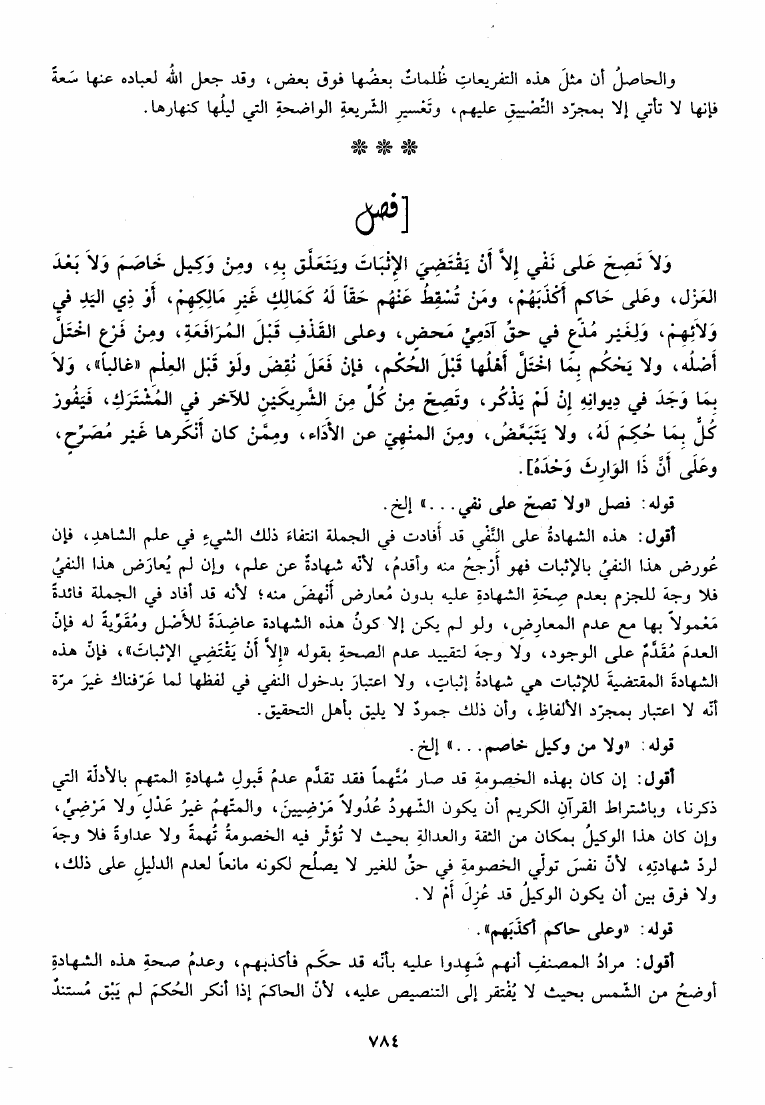 والحاصلُ أن مثلَ هذه التفريعاتِ ظُلماتٌ بعضُها فوق بعض، وقد جعل اللهُ لعباده عنها سَعةً
فإنها لا تأتي إلا بمجرّد التَّضييقِ عليهم، وتَعْسيرِ الشّريعةِ الواضحةِ التي ليلُها كنهارها.
❊ ❊ ❊
[فصل
وَلاَ تَصِحّ عَلى نَفْي إلاَّ أَنْ يَقْتَضِيَ الإثْبَاتَ ويَتَعَلَّق بِهِ، ومِنْ وَكيل خَاصَمَ وَلاَ بَعْدَ
العَزْل، وعَلى حَاكم أَكْذَبَهُمْ، ومَنْ تُسْقِطُ عَنْهُم حَقّاً لَهُ كَمَالِكِ غَيْرِ مَالِكِهِمْ، أوْ ذِي اليَدِ في
وَلائِهِمْ، وَلِغَيْر مُدَّعٍ في حقِّ آدَمِيٍّ مَحضٍ، وعلى القَذْفِ قَبْلَ المُرَافَعَةِ، ومِنْ فَرْع اخْتَلَّ
أصْلُه، ولا يَحْكُم بِمَا اخْتَلَّ أهْلُها قَبْلَ الحُكْم، فإنْ فَعَلَ نُقِضَ ولَوْ قَبْل العِلْم «غالباً»، وَلاَ
بِمَا وَجَدَ في دِيوانِهِ إنْ لَمْ يَذْكُر، وتَصِحّ مِنْ كُلٍّ مِنَ الشَّريكَيْنِ للآخر في المُشْتَرَكِ، فَيَفُوز
كُلٌّ بِمَا حُكِمَ لَهُ، ولا يَتَبَعَّضُ، ومِنَ المنْهيّ عن الأدَاء، ومِمَّنْ كان أَنْكَرها غَيْر مُصَرِّح،
وعَلَى أنَّ ذَا الوَارِثَ وَحْدَهُ].
قوله: فصل «ولا تصحّ على نفي...» إلخ.
أقول: هذه الشهادةُ على النَّفْي قد أفادت في الجملة انتفاءَ ذلك الشيءِ في علم الشاهدِ، فإن
عُورض هذا النفيُ بالإثبات فهو أرْجحُ منه وأقدمُ، لأنّه شهادةٌ عن علم، وإن لم يُعارَض هذا النفيُ
فلا وجهَ للجزم بعدم صِحّةِ الشهادةِ عليه بدون مُعارض أنْهضَ منه؛ لأنه قد أفاد في الجملة فائدةً
مَعْمولاً بها مع عدم المعارِض، ولو لم يكن إلا كونُ هذه الشهادة عاضِدَةً للأصْل ومُقَوِّيةً له فإنّ
العدمَ مُقَدَّمٌ على الوجود، ولا وجهَ لتقييد عدم الصحةِ بقوله «إلاَّ أنْ يَقْتَضي الإثباتَ»، فإنّ هذه
الشهادةَ المقتضيةَ للإثبات هي شهادةُ إثباتٍ، ولا اعتبارَ بدخول النفي في لفظها لما عَرّفناك غيرَ مرّة
أنّه لا اعتبار بمجرّد الألفاظِ، وأن ذلك جمودٌ لا يليق بأهل التحقيق.
قوله: «ولا من وكيل خاصم...» إلخ.
أقول: إن كان بهذه الخصومةِ قد صار مُتَّهماً فقد تقدّم عدمُ قَبولِ شهادةِ المتهم بالأدلّة التي
ذكرنا، وباشتراط القرآنِ الكريم أن يكون الشّهودُ عُدولاً مَرْضيينَ، والمتّهمُ غيرُ عَدْلٍ ولا مَرْضِيٍّ،
وإن كان هذا الوكيلُ بمكان من الثقة والعدالة بحيث لا تُؤثّر فيه الخصومةُ تُهمةً ولا عداوةً فلا وجهَ
لردّ شهادتِهِ، لأنّ نفسَ تولّي الخصومةِ في حقٍّ للغير لا يصلُح لكونه مانعاً لعدم الدليلِ على ذلك،
ولا فرق بين أن يكون الوكيلُ قد عُزِلَ أمْ لا.
قوله: «وعلى حاكم أكذَبَهم».
أقول: مرادُ المصنفِ أنهم شَهِدوا عليه بأنّه قد حكَم فأكذبهم، وعدمُ صحةِ هذه الشهادةِ
أوضحُ من الشّمس بحيث لا يُفْتقر إلى التنصيص عليه، لأنّ الحاكمَ إذا أنكر الحُكمَ لم يَبْق مُستندٌ
٧٨٤